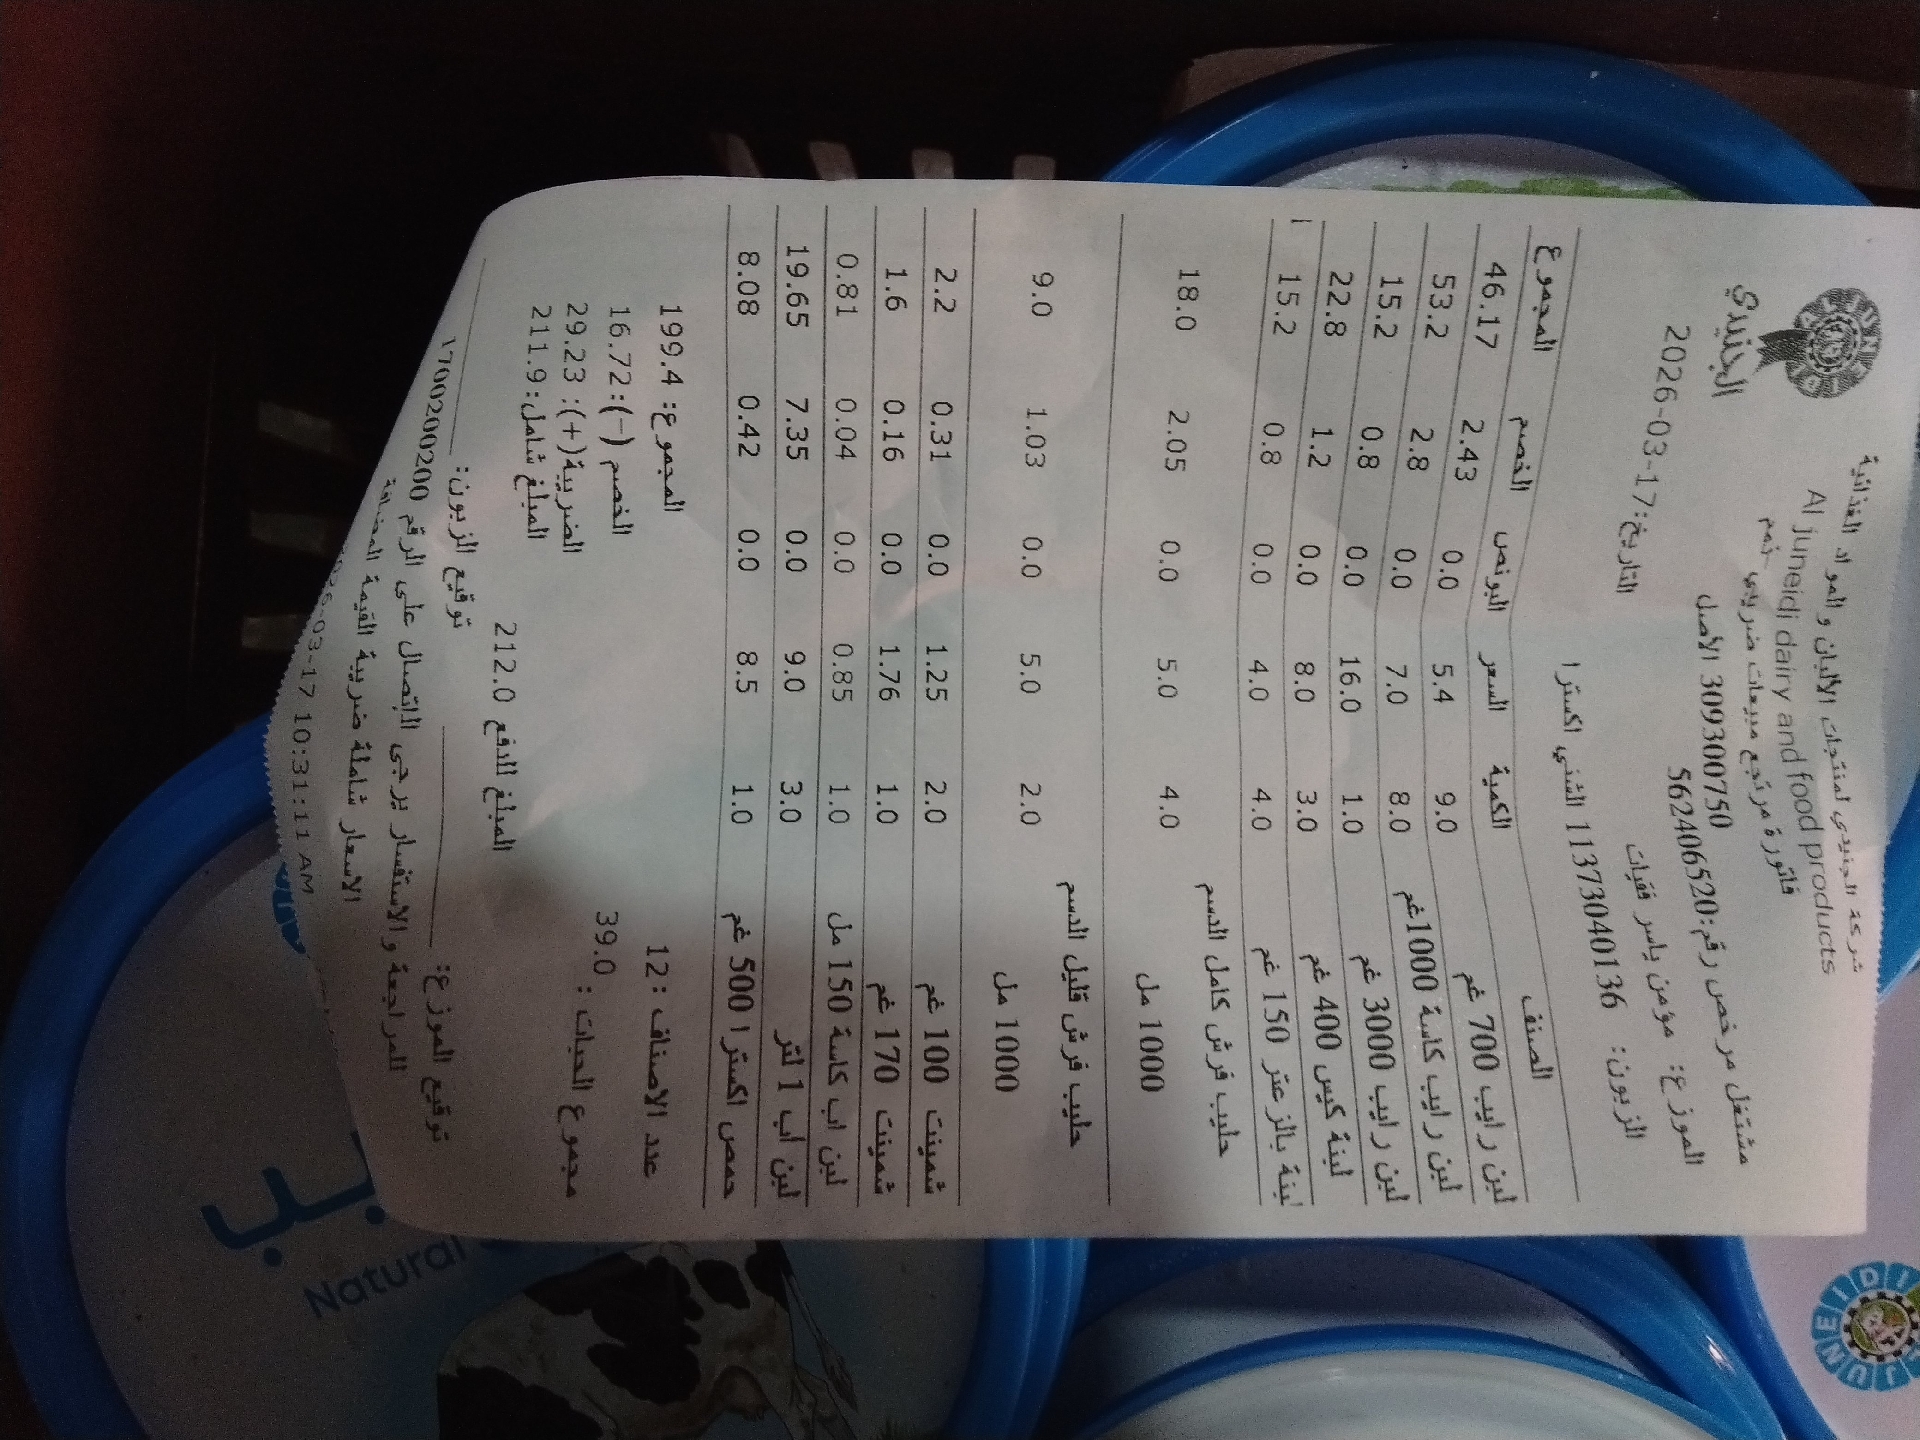 شركة الجنيدي لمنتجات الألبان و المواد الغذائية
Al juneidi dairy and food products
فاتورة مرتجع مبيعات ضريبي خصم
الجنيدي
مشتغل مرخص رقم:562406520 309300750 الأصل
التاريخ:17-03-2026
الموزع: مؤمن ياسر فقيات
الزبون: 11373040136 الثني اكسترا
الصنف الكمية السعر البونص الخصم المجموع
لبن رايب 700 غم 9.0 5.4 0.0 2.43 46.17
لبن رايب كاسة 1000غم 8.0 7.0 0.0 2.8 53.2
لبن رايب 3000 غم 1.0 16.0 0.0 0.8 15.2
لبنة كيس 400 غم 3.0 8.0 0.0 1.2 22.8
لبنة بالزعتر 150 غم 4.0 4.0 0.0 0.8 15.2
حليب فرش كامل الدسم
1000 مل 4.0 5.0 0.0 2.05 18.0
حليب فرش قليل الدسم
1000 مل 2.0 5.0 0.0 1.03 9.0
شمينت 100 غم 2.0 1.25 0.0 0.31 2.2
شمينت 170 غم 1.0 1.76 0.0 0.16 1.6
لبن اب كاسة 150 مل 1.0 0.85 0.0 0.04 0.81
لبن اب 1 لتر 3.0 9.0 0.0 7.35 19.65
حمص اكسترا 500 غم 1.0 8.5 0.0 0.42 8.08
عدد الاصناف : 12 المجموع: 199.4
مجموع الحبات : 39.0 الخصم (-):16.72
الضريبة(+): 29.23
المبلغ شامل:211.9
المبلغ للدفع 212.0
توقيع الموزع: توقيع الزبون:
للمراجعة و الاستفسار يرجى الاتصال على الرقم ١700200200
الاسعار شاملة ضريبة القيمة المضافة
03-17 10:31:11 AM
Natural
JUNEIDI